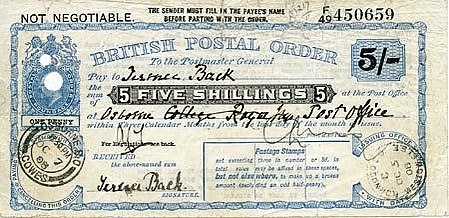 THE SENDER MUST FILL IN THE PAYEE'S NAME
BEFORE PARTING WITH THE ORDER.
NOT NEGOTIABLE.
F/49 450659
BRITISH POSTAL ORDER
To the Postmaster General
5/-
Pay to Terence Back
the sum of
5 FIVE SHILLINGS 5
at the Post Office
at Osborne College Post Office
within Three Calendar Months from the last day of the month of issue.
ONE PENNY
For Regulations see back.
RECEIVED
the above-named sum
Terence Back
SIGNATURE.
Postage Stamps
not exceeding three in number or 5d. in
total value may be affixed in these spaces,
but not elsewhere, to make up a broken
amount (excluding an odd half-penny).
COWES
ISSUING OFFICE